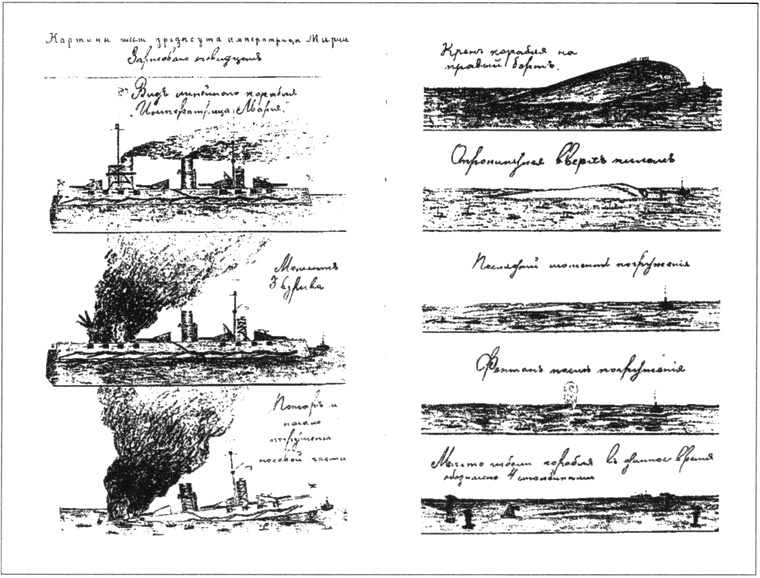 Картины
Императрица Мария
Зарисовано очевидцемъ
Видъ линейнаго корабля
"Императрица Мария".
Моментъ
3 взрыва
Пожаръ и
начало
погружения
носовой части
Кренъ корабля на
правый бортъ.
Опрокинулся вверхъ килемъ
Последний моментъ погружения
Фонтанъ после погружения
Место гибели корабля въ данное время
обозначено 4 столбиками